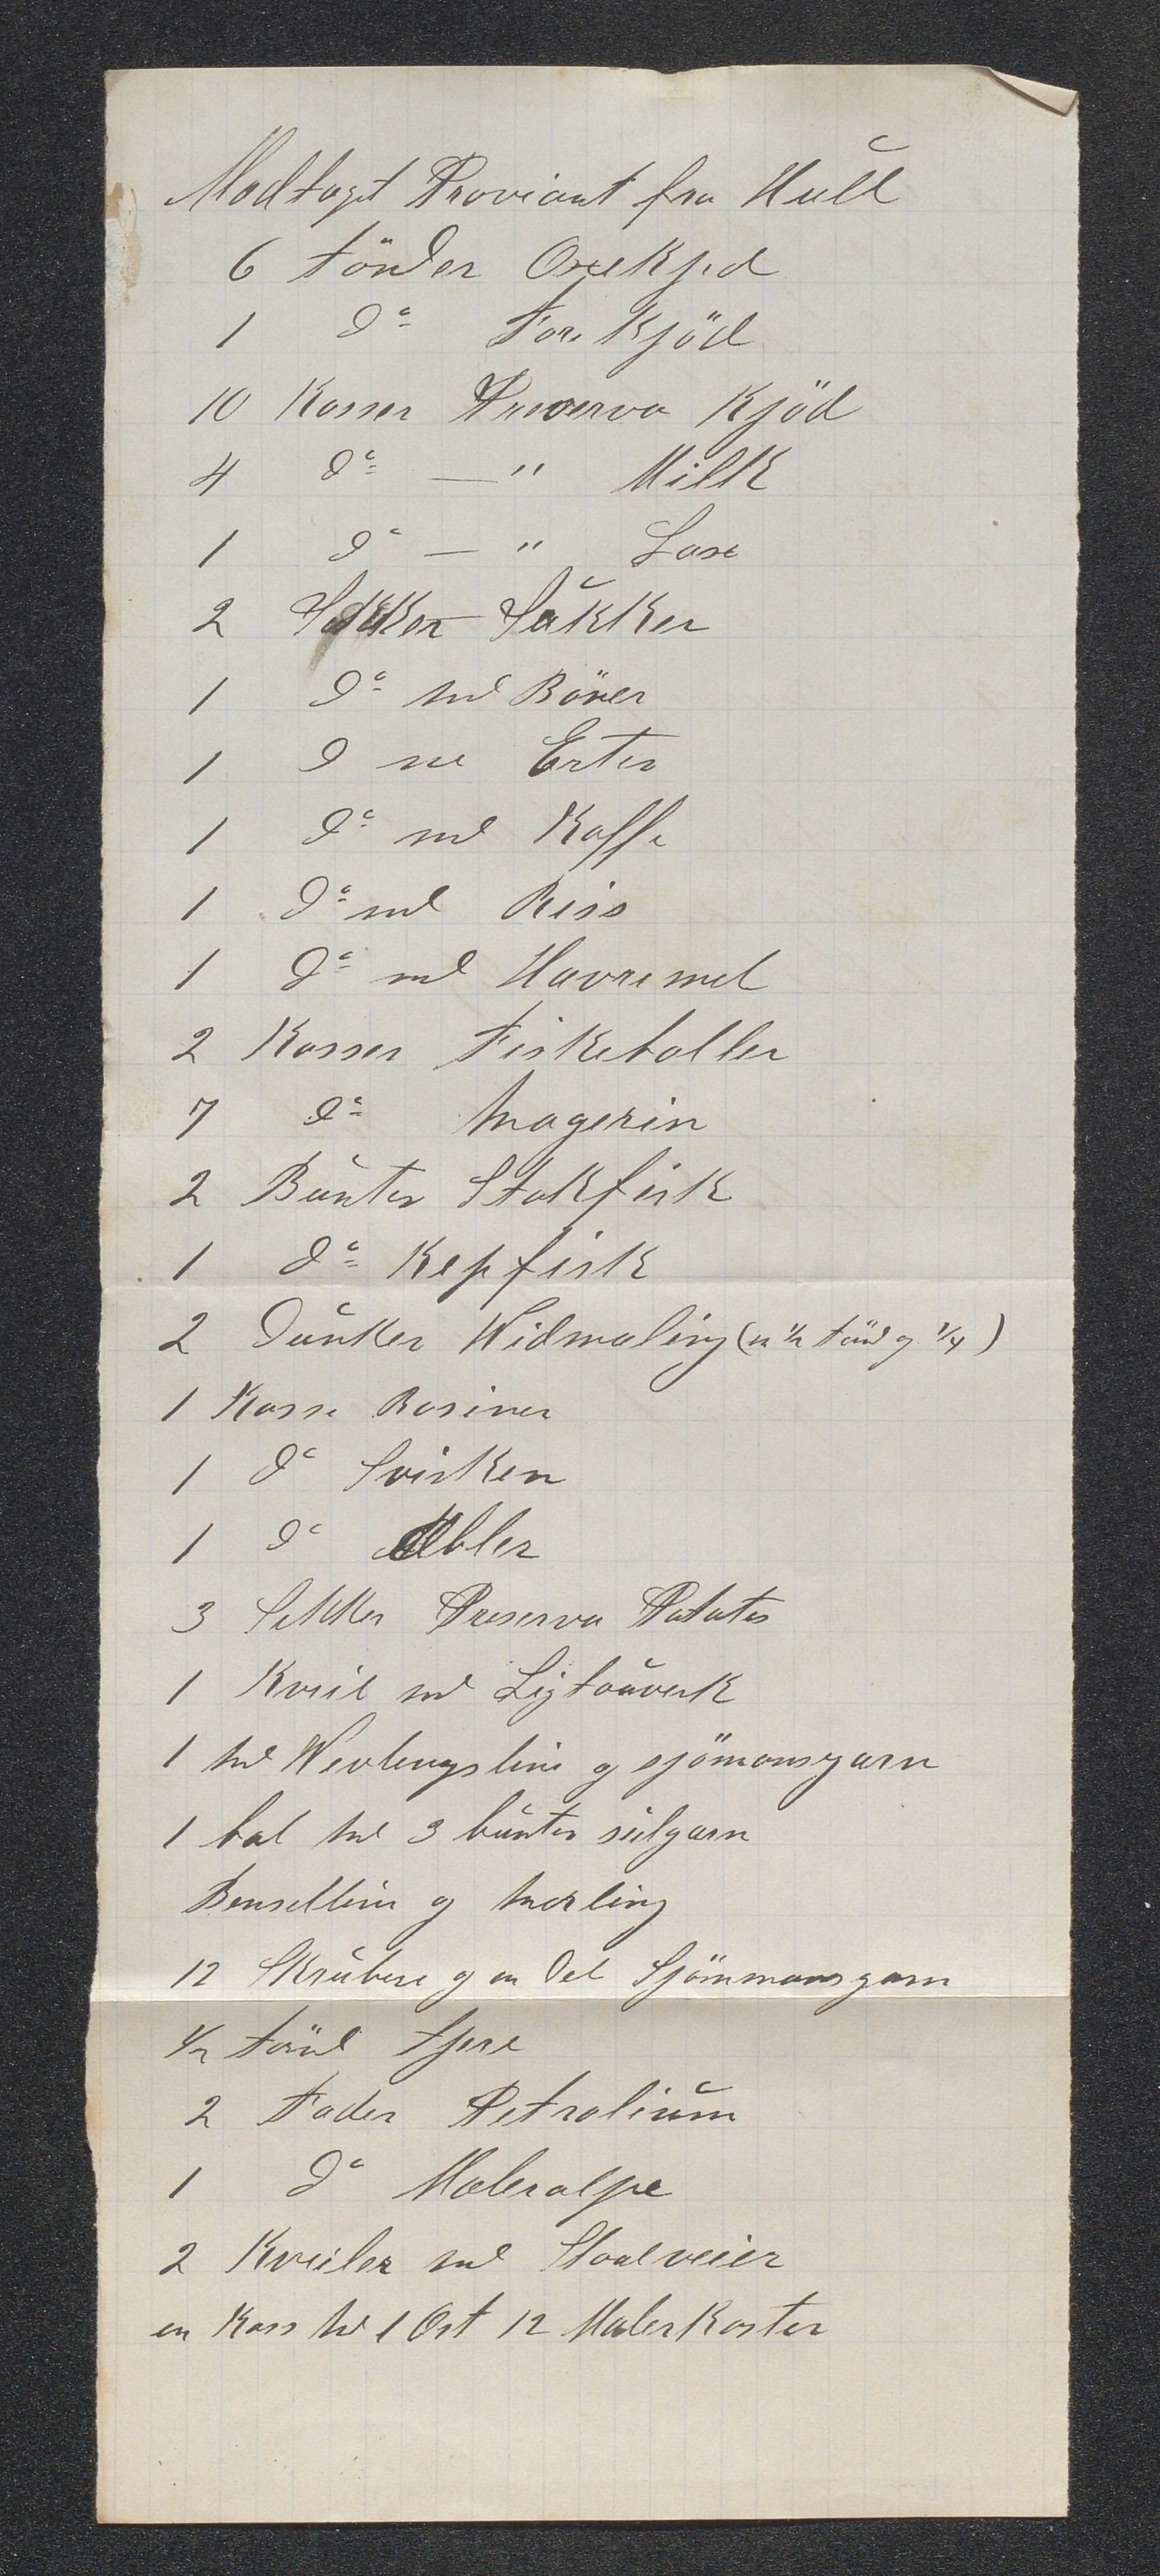 Modtagt Proviant fra Hull
6 tönder Oxekjød
1 Do Fore Kjöd
10 Kasser Preserva Kjöd
4 Do — " Milk
1 Do — " Laxe
2 Sekker Sukker
1 Do med Böner
1 D me Erter
1 Do med Kaffe
1 Do med Riss
1 Do med Havremel
2 Kasser Fiskeboller
7 Do Magerin
2 Bunter Stokfisk
1 Do Kepfisk
2 Dunker Hidmaling (en 1/2 tönd og 1/4)
1 Kasse Rosiner
1 Do Svisken
1 Do Æbler
3 Sekker Preserva Potates
1 Kveil med Ligtouverk
1 md Wevlengsline og sjömansgarn
1 bal md 3 bunter seilgarn
Benselline og Merling
12 Skrubere og en Del Sjömmansgarn
1/2 tönd tjere
2 Fader Petrolium
1 Do Malerolje
2 Kveiler md Staalveier
en Kass md 1 Ost 12 MalerKoster